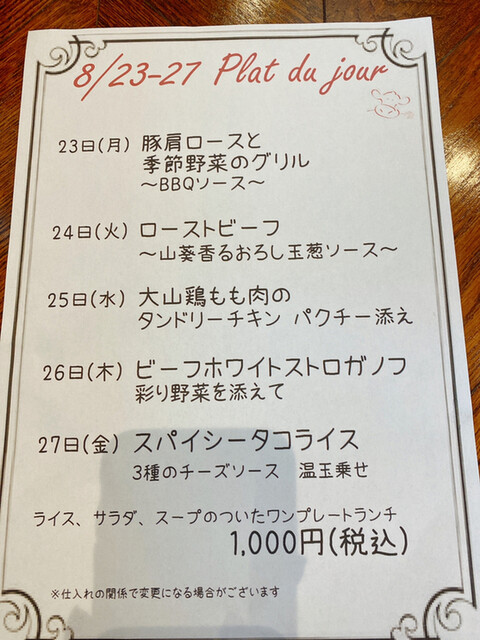 8/23-27 Plat du jour
23日(月) 豚肩ロースと
季節野菜のグリル
～BBQソース～
24日(火) ローストビーフ
～山葵香るおろし玉葱ソース～
25日(水) 大山鶏もも肉の
タンドリーチキン パクチー添え
26日(木) ビーフホワイトストロガノフ
彩り野菜を添えて
27日(金) スパイシータコライス
3種のチーズソース 温玉乗せ
ライス、サラダ、スープのついたワンプレートランチ
1,000円(税込)
※仕入れの関係で変更になる場合がございます